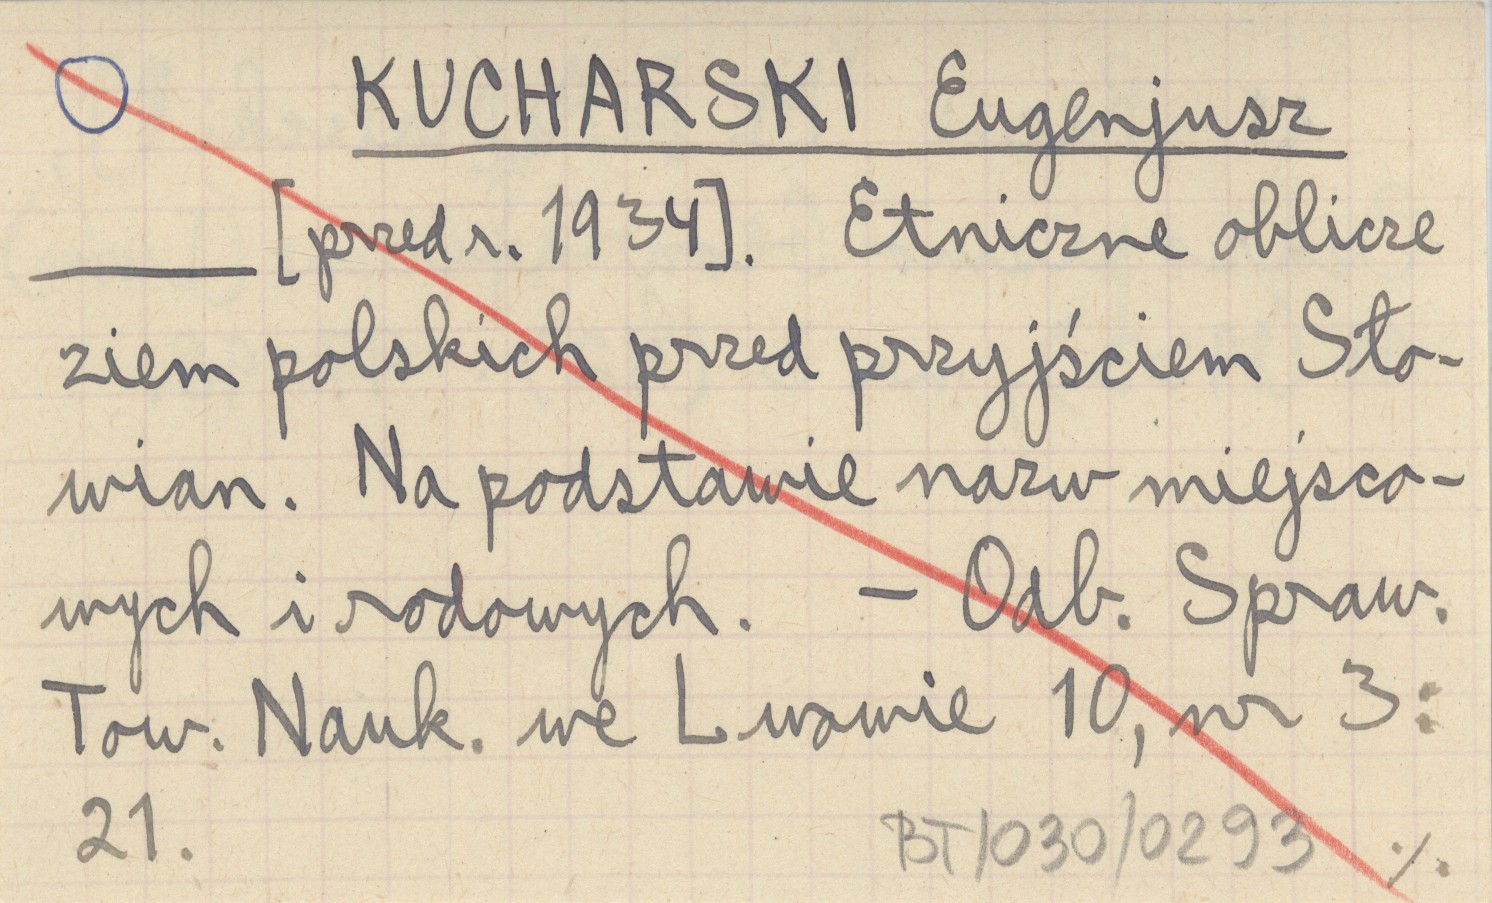 KUCHARSKI Eugenjusz
[przed r. 1934]. Etniczne oblicze
ziem polskich przed przyjściem Sło-
wian. Na podstawie nazw miejsco-
wych i rodowych. – Odb. Spraw.
Tow. Nauk. we Lwowie 10, nr 3:
21.
BT/030/0293 ./.